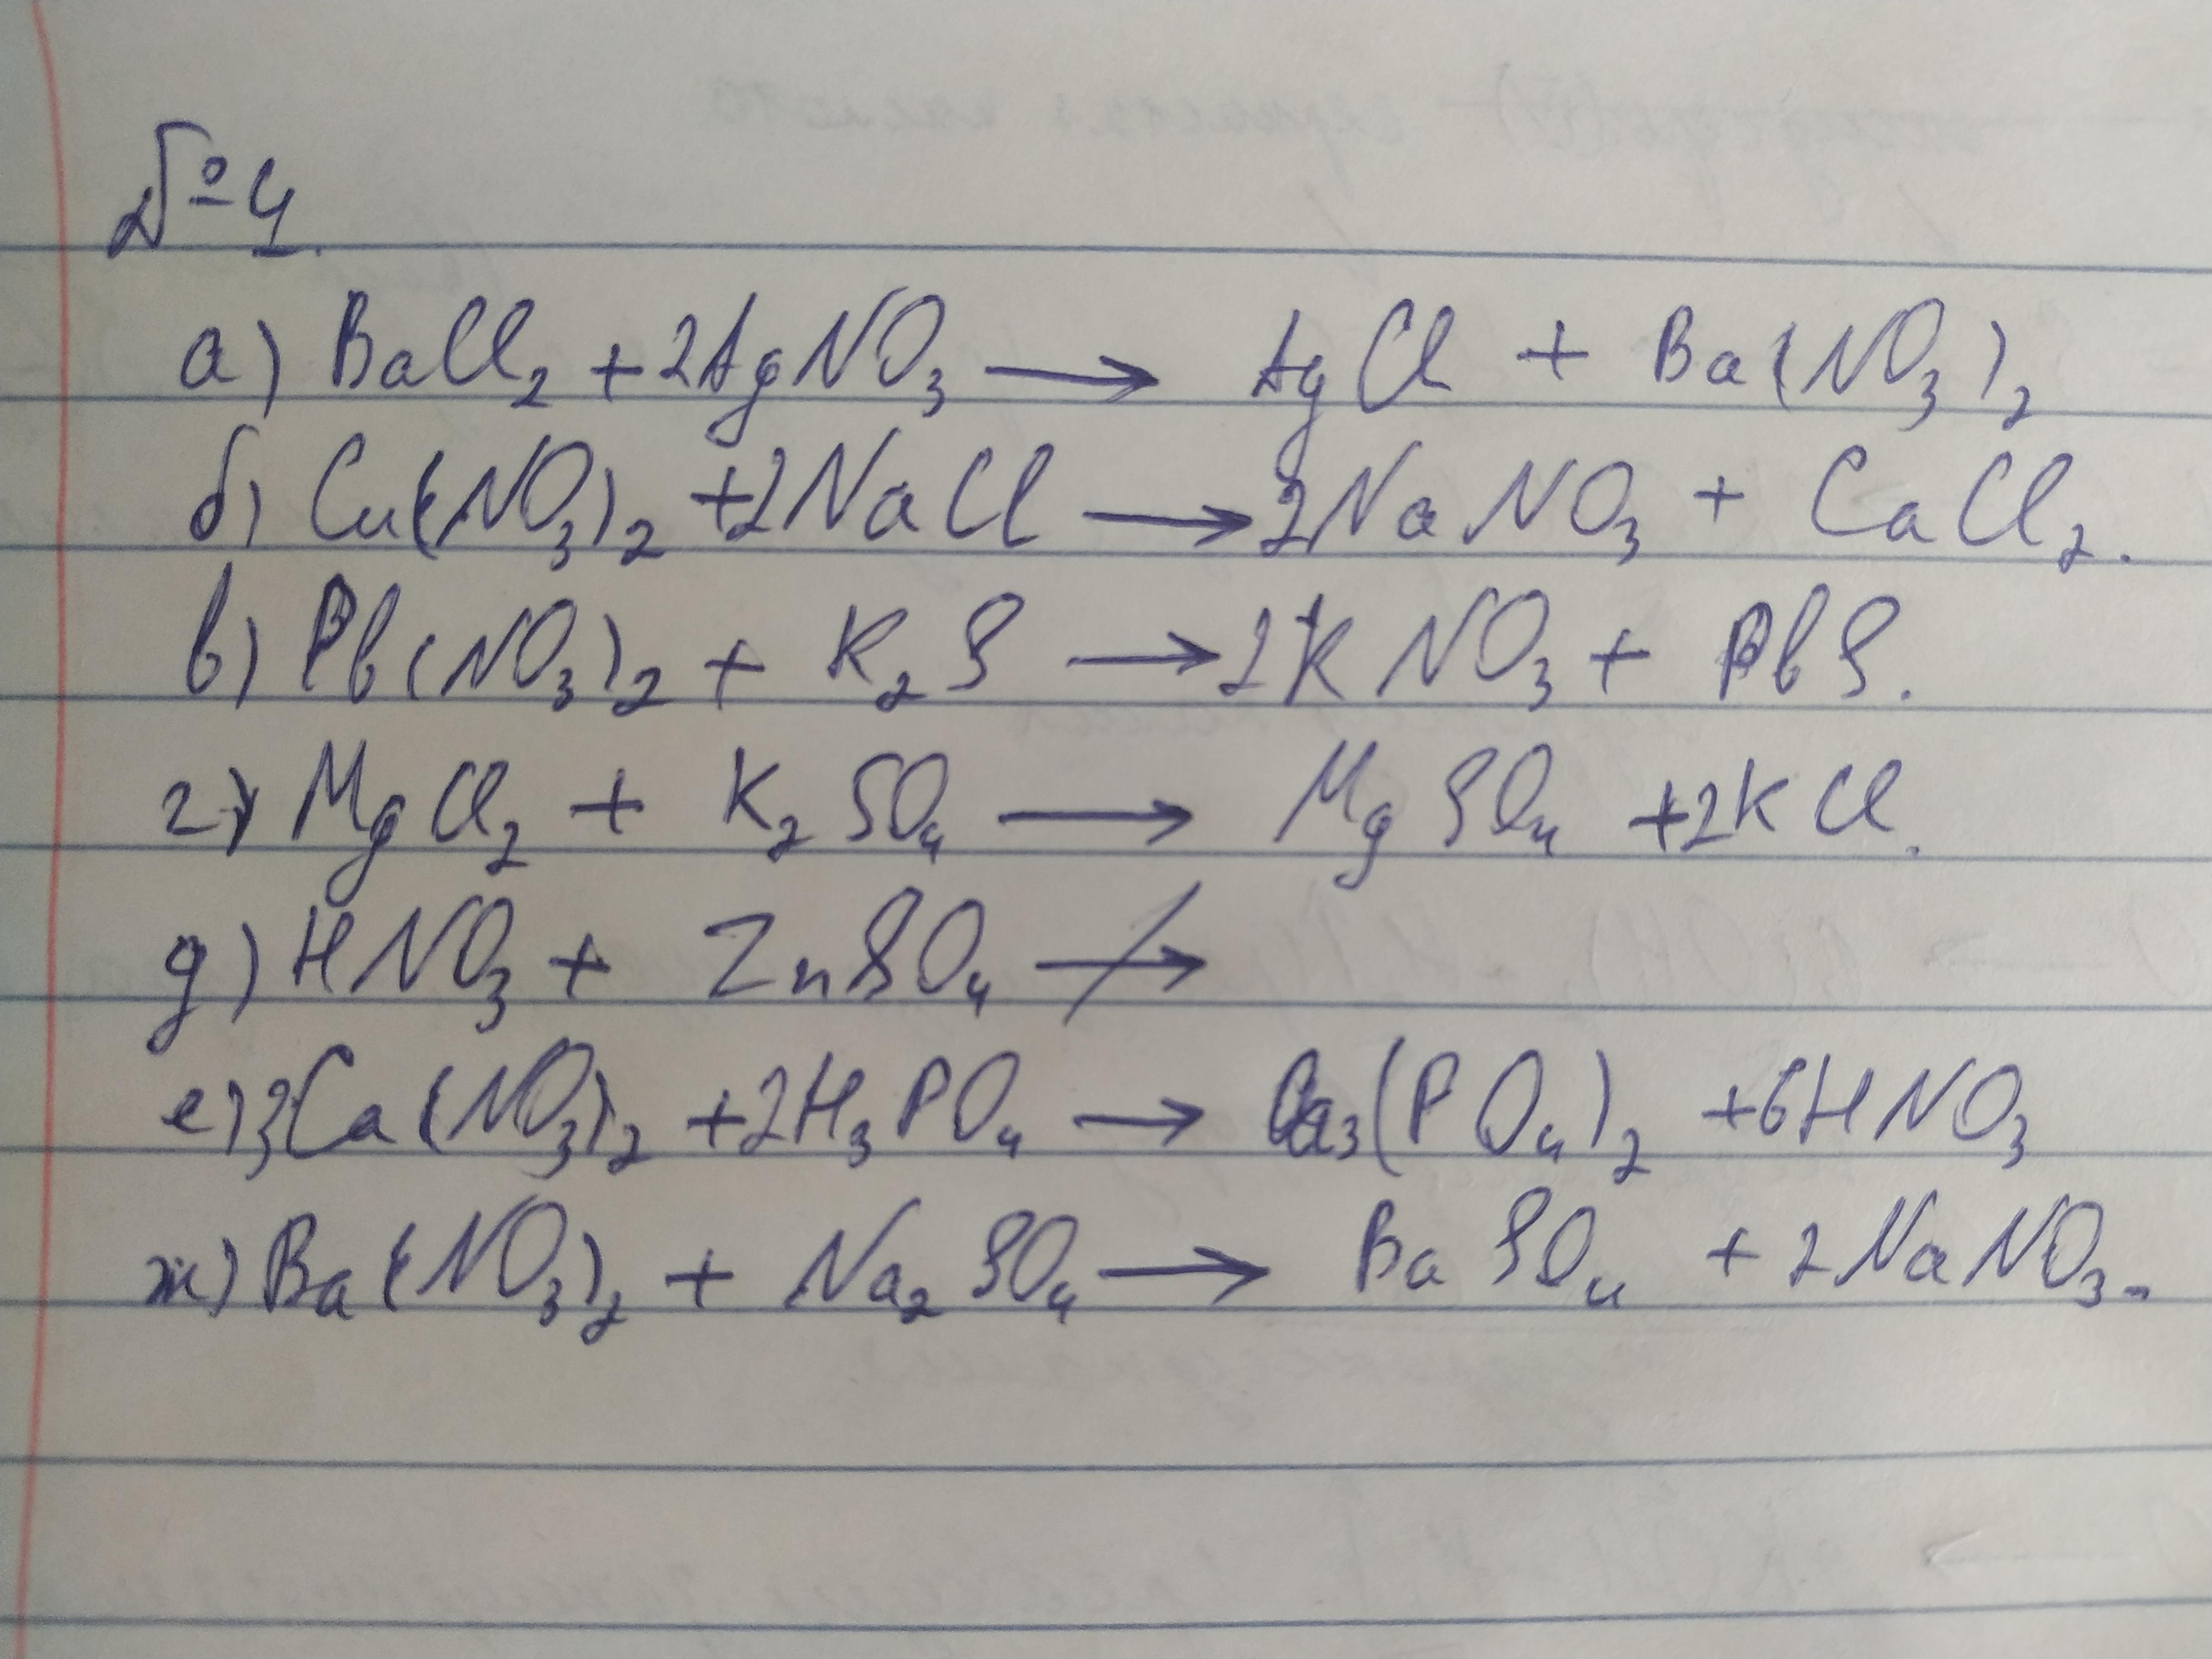 №4.
а) BaCl₂ + 2AgNO₃ → AgCl + Ba(NO₃)₂
б) Cu(NO₃)₂ + 2NaCl → 2NaNO₃ + CaCl₂.
в) Pb(NO₃)₂ + K₂S → 2KNO₃ + PbS.
г) MgCl₂ + K₂SO₄ → MgSO₄ + 2KCl.
д) HNO₃ + ZnSO₄ ↛
е) 3Ca(NO₃)₂ + 2H₃PO₄ → Ca₃(PO₄)₂ + 6HNO₃
ж) Ba(NO₃)₂ + Na₂SO₄ → BaSO₄ + 2NaNO₃.